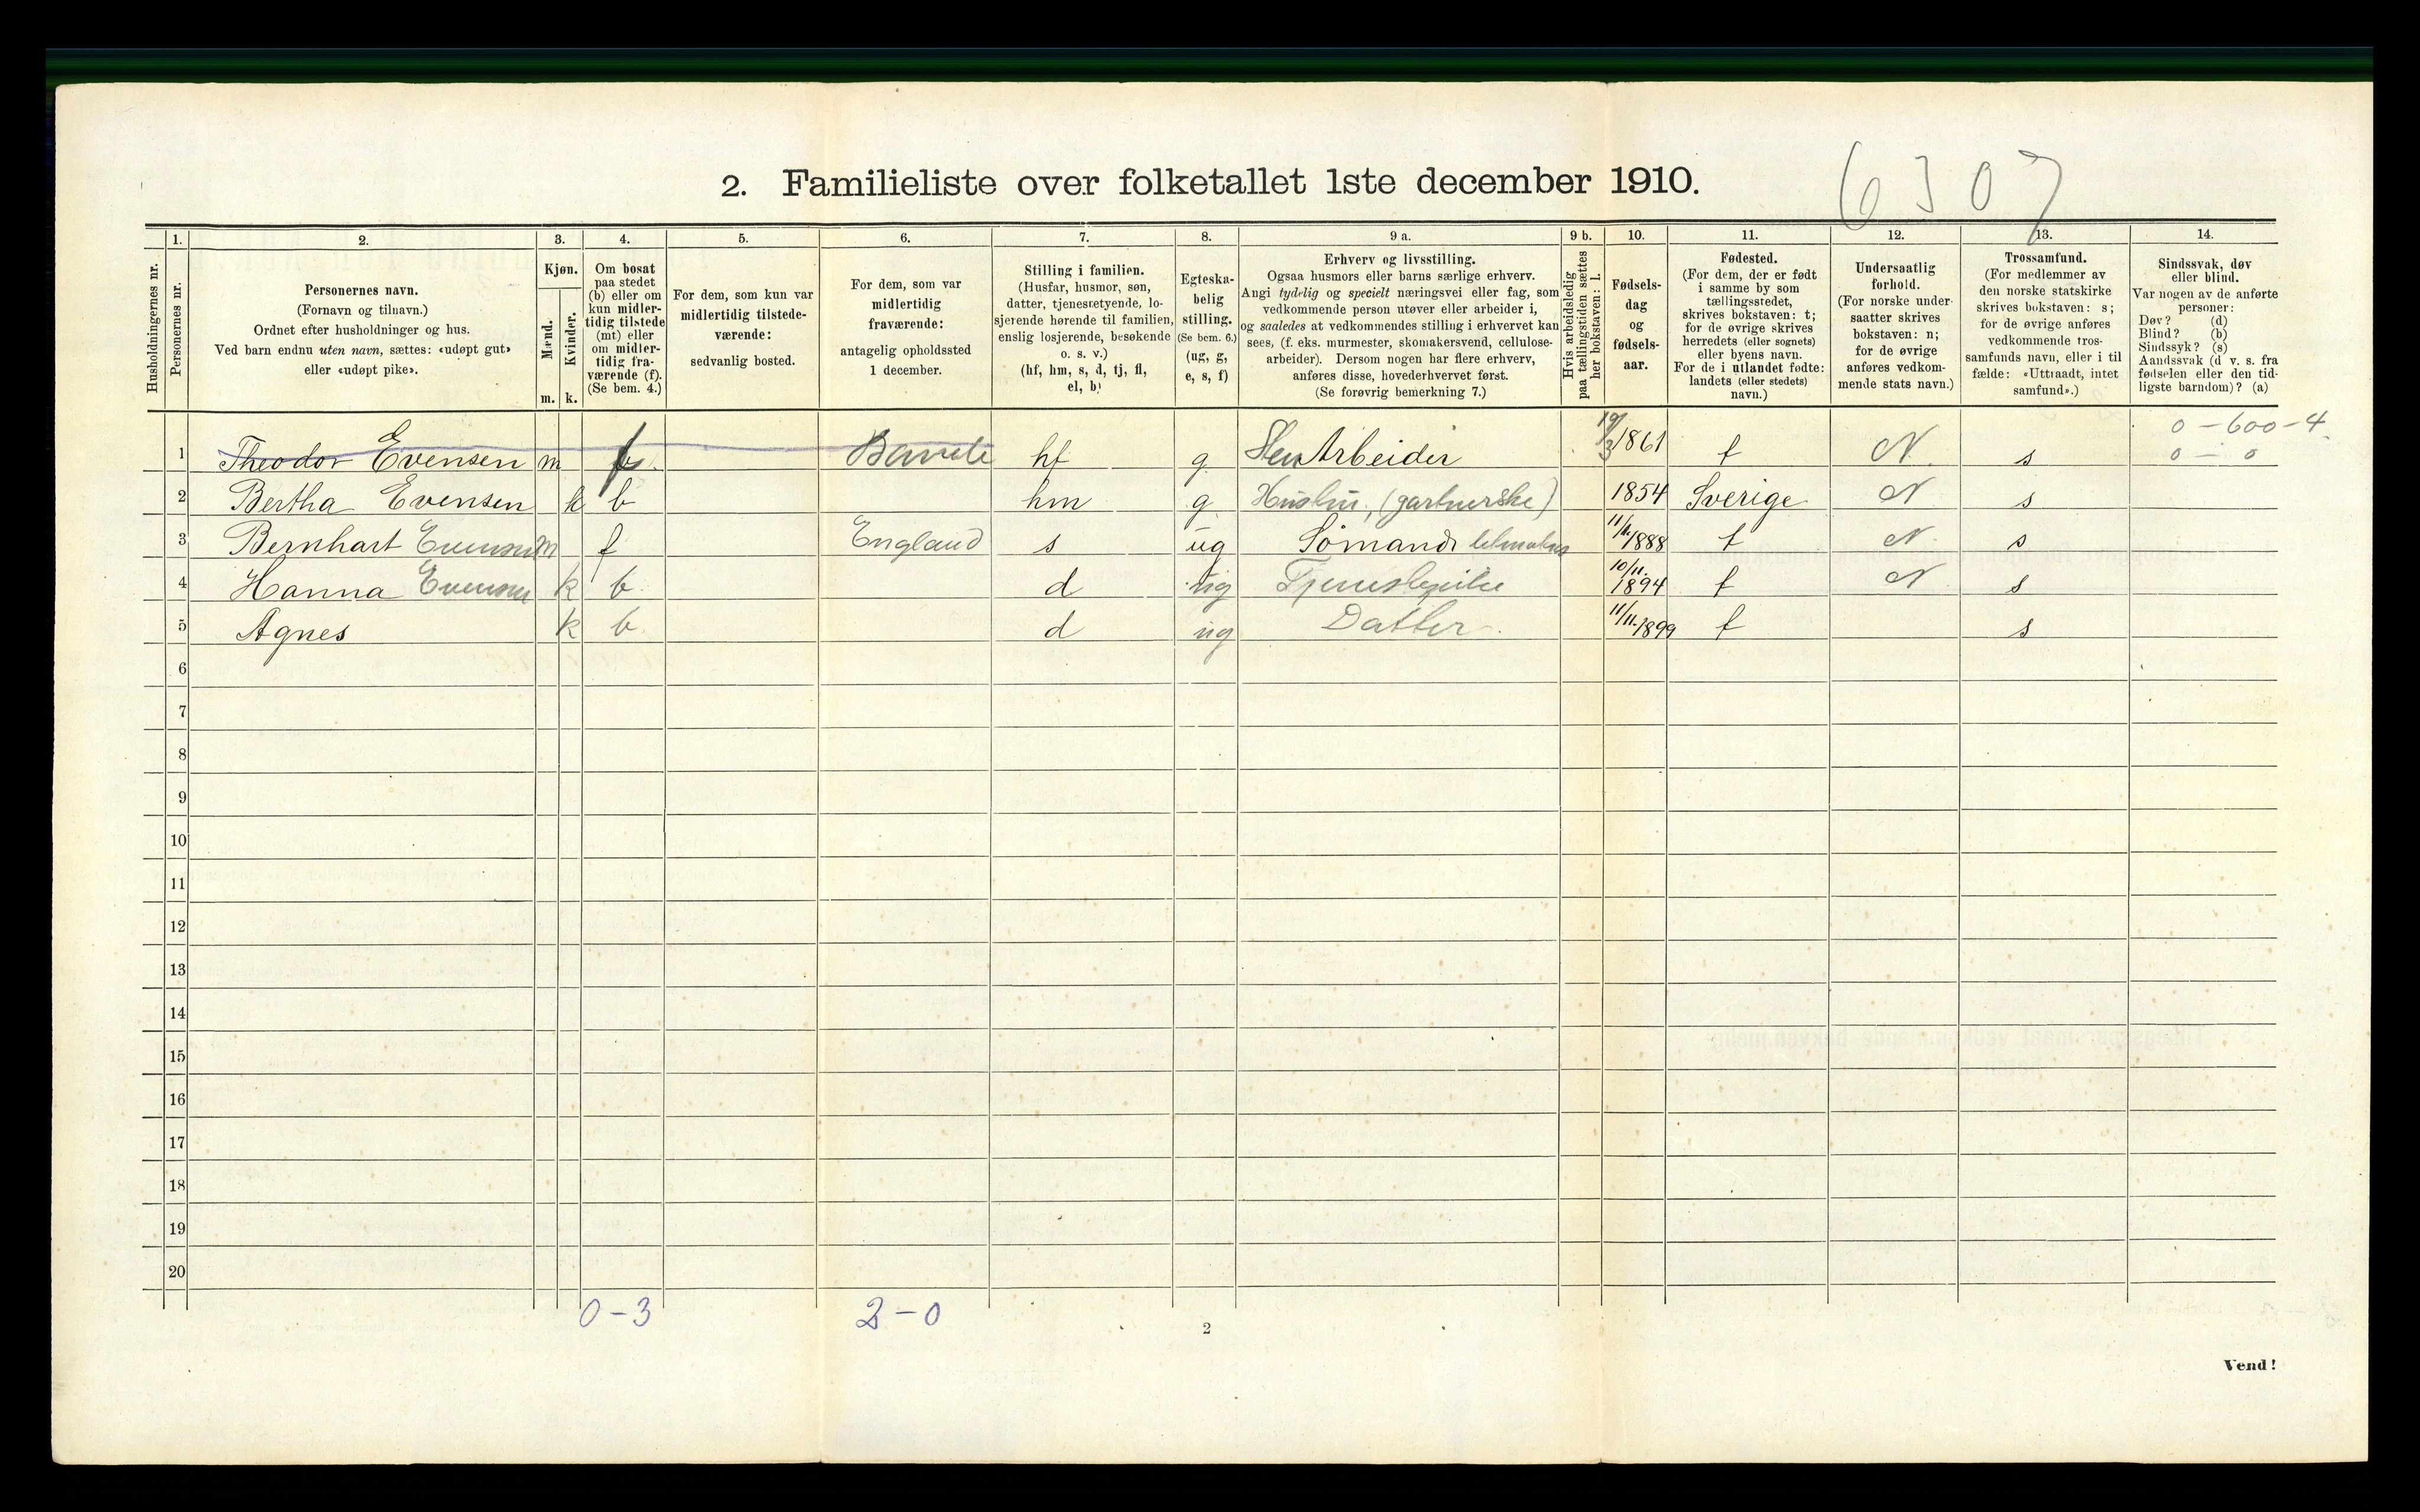 6307
2. Familieliste over folketallet 1ste december 1910.
Husholdningernes nr.
1. Personernes nr.
2. Personernes navn.
(Fornavn og tilnavn.)
Ordnet efter husholdninger og hus.
Ved barn endnu uten navn, sættes: «udøpt gut»
eller «udøpt pike».
3. Kjøn.
Mænd. m.
Kvinder. k.
4. Om bosat
paa stedet
(b) eller om
kun midler-
tidig tilstede
(mt) eller
om midler-
tidig fra-
værende (f).
(Se bem. 4.)
5. For dem, som kun var
midlertidig tilstede-
værende:
sedvanlig bosted.
6. For dem, som var
midlertidig
fraværende:
antagelig opholdssted
1 december.
7. Stilling i familien.
(Husfar, husmor, søn,
datter, tjenestetyende, lo-
sjerende hørende til familien,
enslig losjerende, besøkende
o. s. v.)
(hf, hm, s, d, tj, fl,
el, b)
8. Egteska-
belig
stilling.
(Se bem. 6.)
(ug, g,
e, s, f)
9 a. Erhverv og livsstilling.
Ogsaa husmors eller barns særlige erhverv.
Angi tydelig og specielt næringsvei eller fag, som
vedkommende person utøver eller arbeider i,
og saaledes at vedkommendes stilling i erhvervet kan
sees, (f. eks. murmester, skomakersvend, cellulose-
arbeider). Dersom nogen har flere erhverv,
anføres disse, hovederhvervet først.
(Se forøvrig bemerkning 7.)
9 b. Hvis arbeidsledig
paa tællingstiden sættes
her bokstaven: l.
10. Fødsels-
dag
og
fødsels-
aar.
11. Fødested.
(For dem, der er født
i samme by som
tællingsstedet,
skrives bokstaven: t;
for de øvrige skrives
herredets (eller sognets)
eller byens navn.
For de i utlandet fødte:
landets (eller stedets)
navn.)
12. Undersaatlig
forhold.
(For norske under-
saatter skrives
bokstaven: n;
for de øvrige
anføres vedkom-
mende stats navn.)
13. Trossamfund.
(For medlemmer av
den norske statskirke
skrives bokstaven: s;
for de øvrige anføres
vedkommende tros-
samfunds navn, eller i til
fælde: «Uttraadt, intet
samfund».)
14. Sindssvak, døv
eller blind.
Var nogen av de anførte
personer:
Døv? (d)
Blind? (b)
Sindssyk? (s)
Aandssvak (d v. s. fra
fødselen eller den tid-
ligste barndom)? (a)
0 - 600 - 4
1 Theodor Evensen m f Bamle hf g Arbeider 19/3 1861 t N. s 0 - 0
2 Bertha Evensen k b hm g Hustru, (gartnerske) 1854 Sverige N s
3 Bernhart Evensen m f England s ug Sømand 1888 t N. s
4 Hanna Evensen k b d ug Tjenestepike 10/11. 1894 t N s
5 Agnes k b d ug Datter 11/11. 1899 t s
6
7
8
9
10
11
12
13
14
15
16
17
18
19
20
0 - 3 2 - 0
2
Vend!